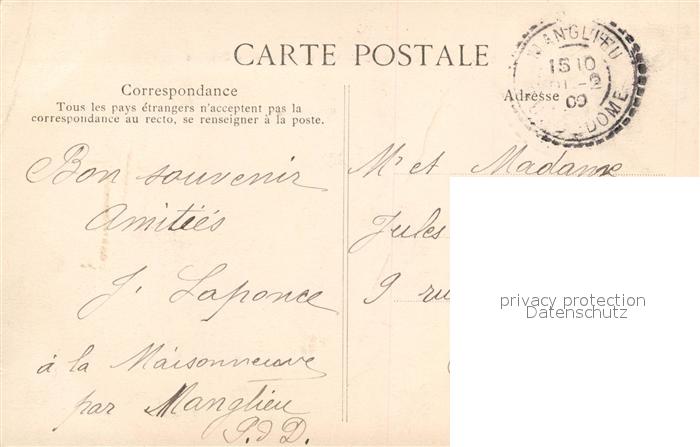 CARTE POSTALE
MANGLIEU
15 10
09
DOME
Correspondance
Tous les pays étrangers n'acceptent pas la
correspondance au recto, se renseigner à la poste.
Adresse
Bon souvenir
Amitiés
J. Laponce
à la Maisonneuve
par Manglieu
P. d D.
Mr et Madame
Jules
9 ru
privacy protection
Datenschutz